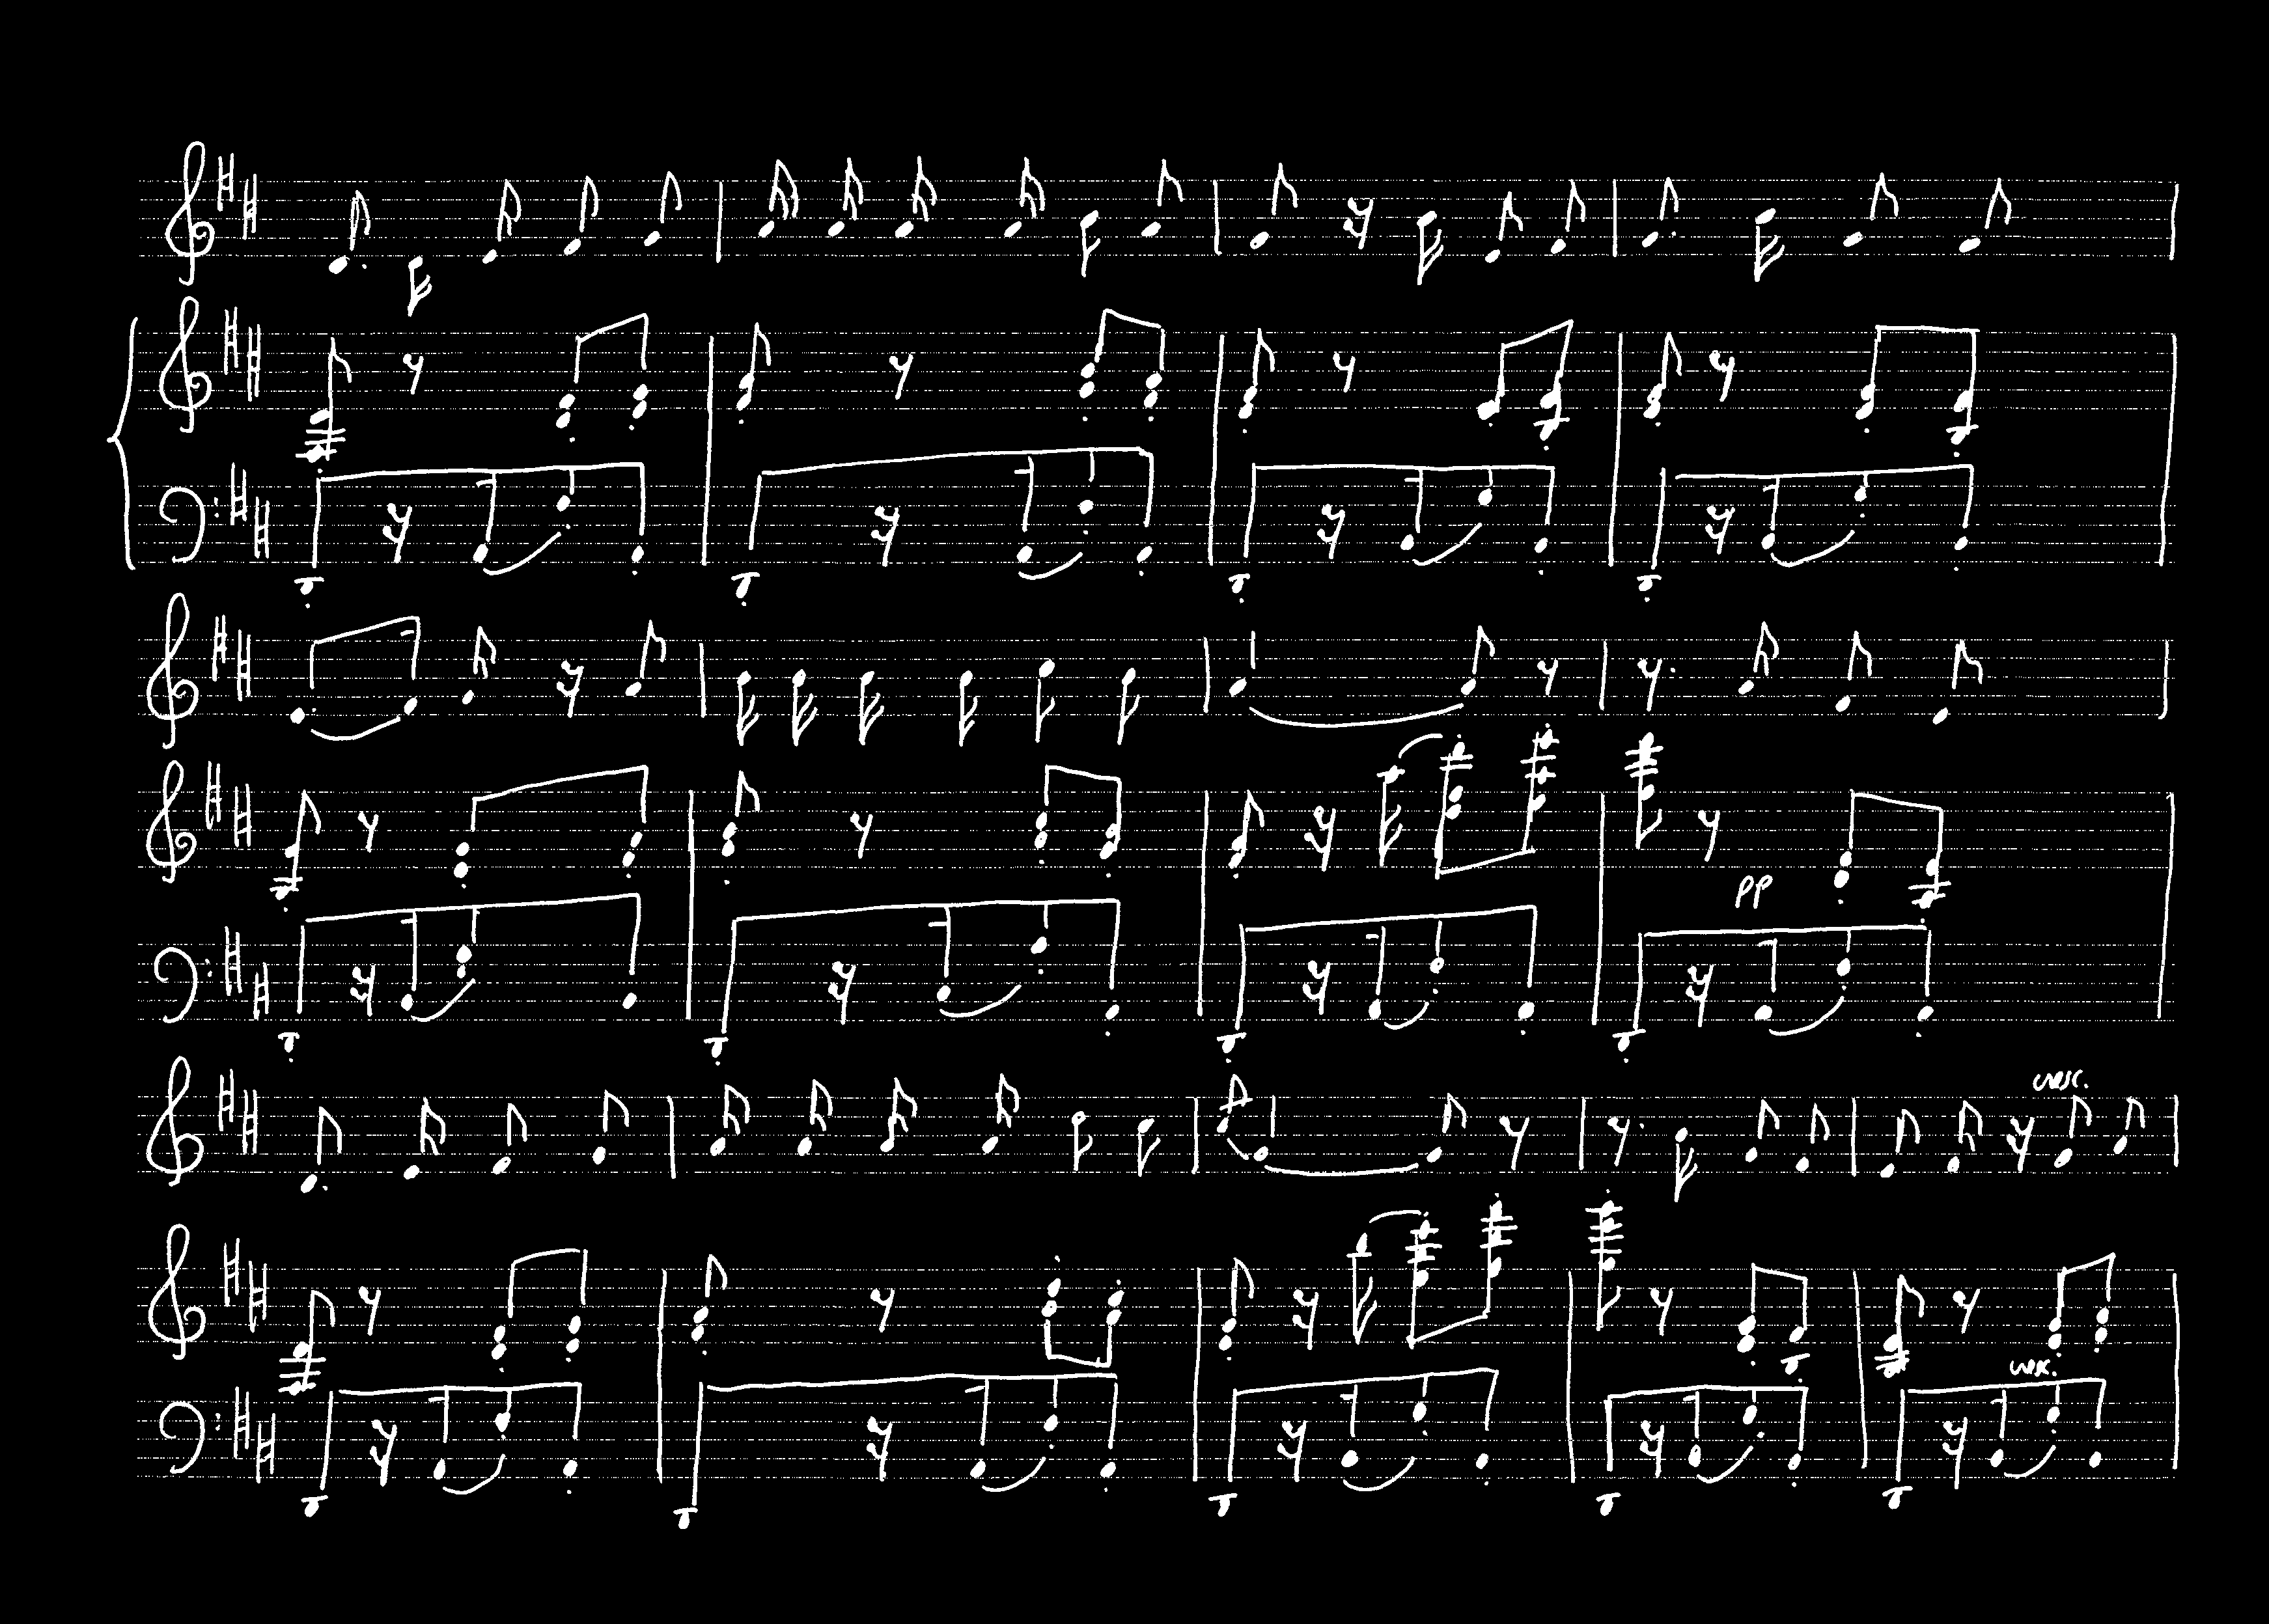 pp
cresc.
cresc.